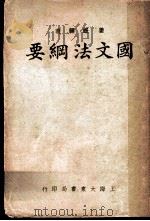 國文法綱要
上海大東書局印行